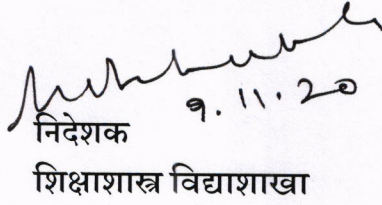 9.11.20
निदेशक
शिक्षाशास्त्र विद्याशाखा